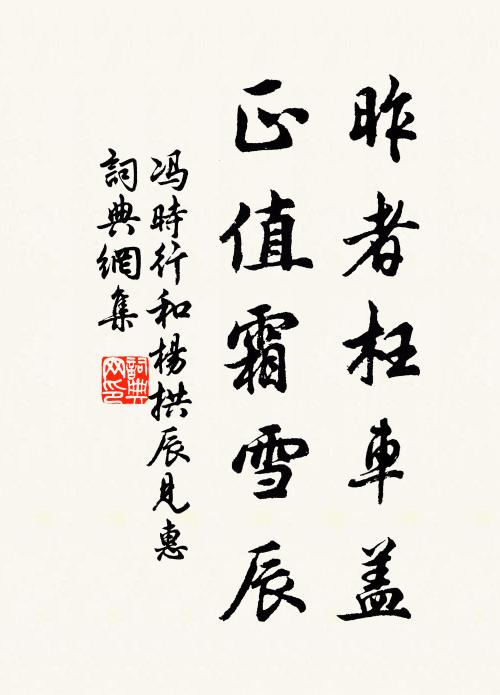 昨者枉車盖
正值霜雪辰
冯時行和楊拱辰見惠
詞典網集
詞典網印